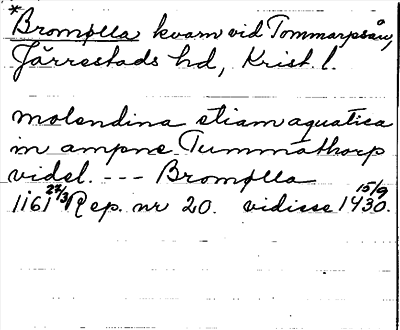 *Bromølla kvarn vid Tommarpsån,
Järrestads hd, Krist. l.
molendina etiam aquatica
in ampne Tummathorp
videl. --- Bromølla
1161 22/3 Rep. nr 20. vidisse 15/9 1430.